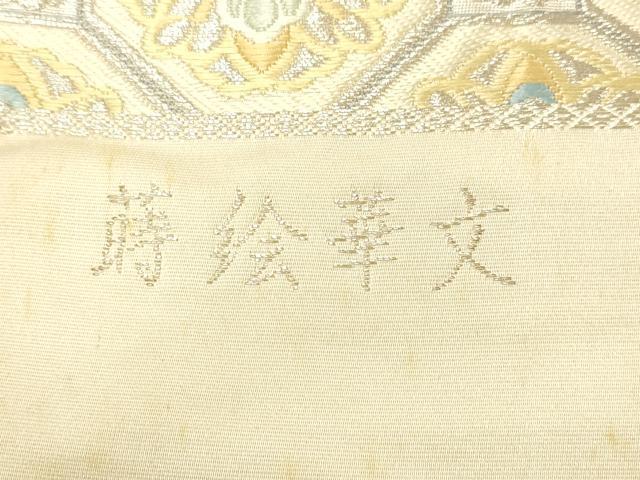 蒔絵華文